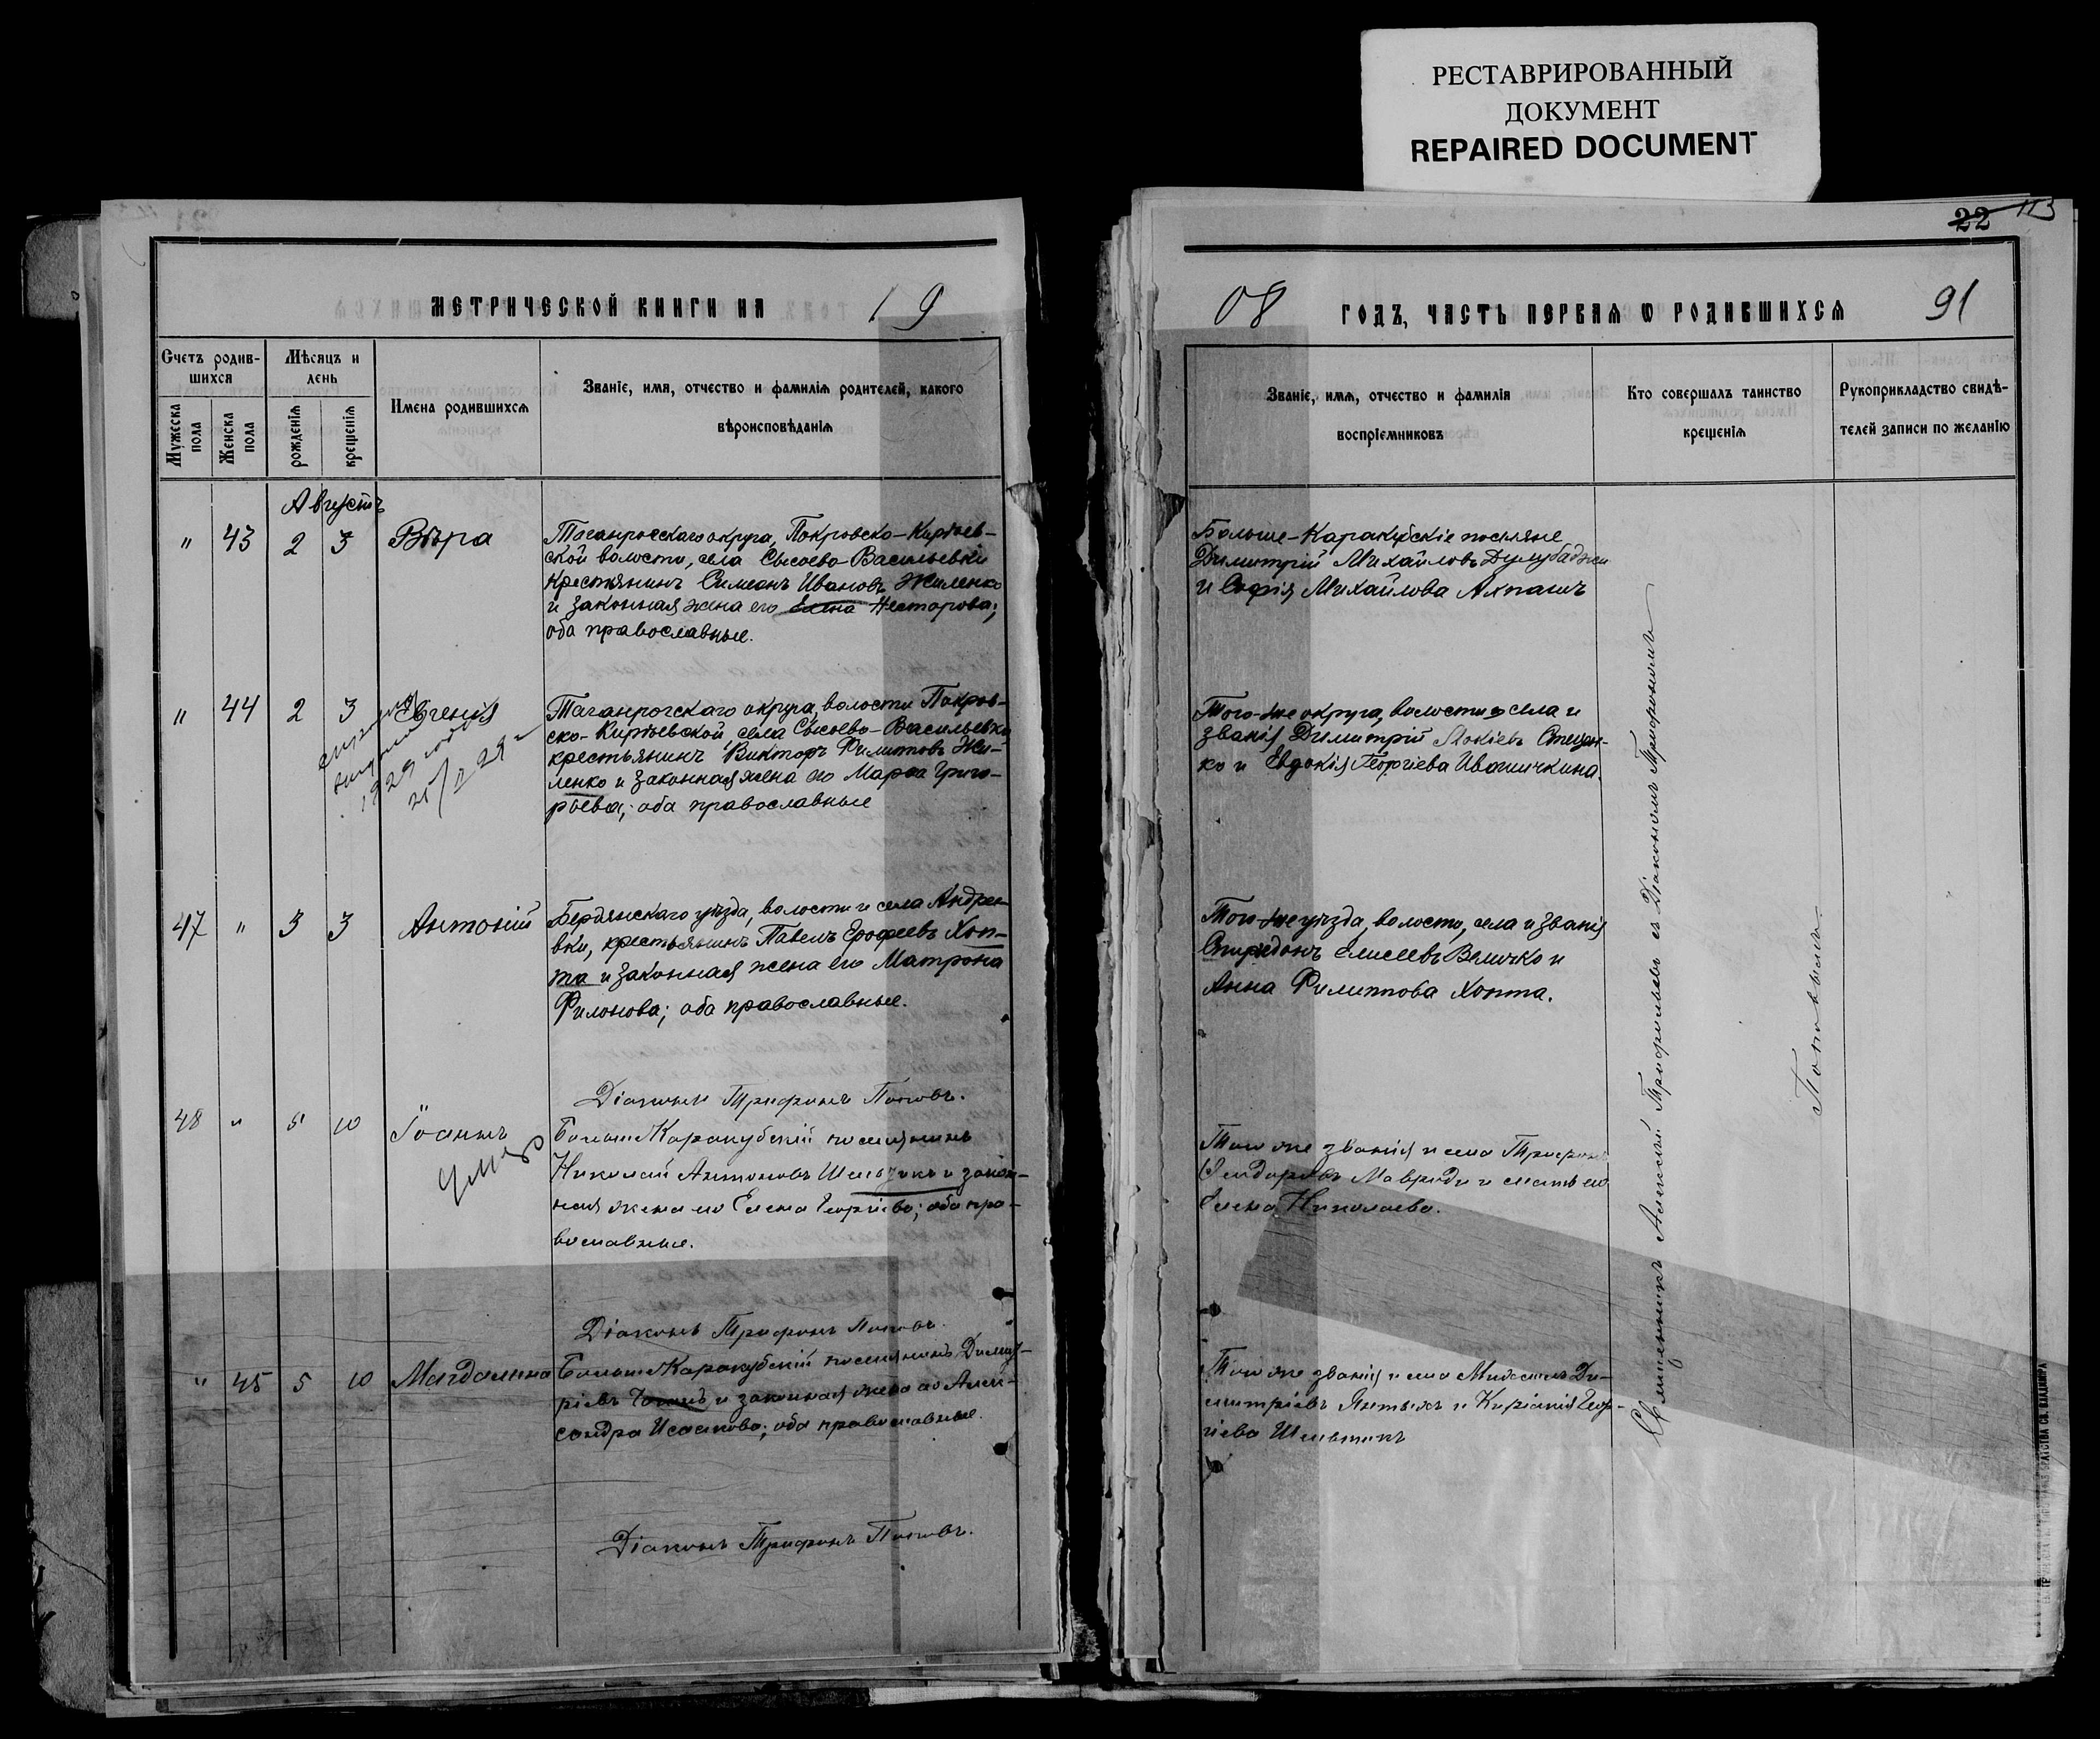 РЕСТАВРИРОВАННЫЙ
ДОКУМЕНТ
REPAIRED DOCUMENT
22 113
МЕТРИЧЕСКОЙ КНИГИ НА 19
Счетъ родив-
шихся
Мѣсяцъ и
день
Мужеска
пола
Женска
пола
рожденія
крещенія
Имена родившихся
Званіе, имя, отчество и фамилія родителей, какого
вѣроисповѣданія
Августъ
" 43 2 3 Вѣра
Таганрогскаго округа, Покровско-Кирѣев-
ской волости, села Сысоево-Васильевки
крестьянинъ Симеонъ Ивановъ Жиленко
и законная жена его Елена Несторова;
оба православные.
" 44 2 3 Евгенія
1929 года
Таганрогскаго округа, волости Покров-
ско-Кирѣевской села Сысоево-Васильевки
крестьянинъ Викторъ Филиповъ Жи-
ленко и законная жена его Марѳа Григо-
рьева; оба православные
47 " 3 3 Антоній
Бердянскаго уѣзда, волости и села Андрее-
вки, крестьянинъ Павелъ Ерофеевъ Хоп-
та и законная жена его Матрона
Филонова; оба православные.
Діаконъ Трифонъ Поповъ.
48 " 5 10 Іоаннъ
Умеръ
Больше Каракубскій поселянинъ
Николай Антоновъ и закон-
ная жена его Елена Георгіева; оба пра-
вославные.
Діаконъ Трифонъ Поповъ.
" 45 5 10 Магдалина
Больше Каракубскій поселянинъ Димит-
ріевъ и законная жена его Алек-
сандра Исаакова; оба православные.
Діаконъ Трифонъ Поповъ.
08 ГОДЪ, ЧАСТЬ ПЕРВАЯ Ѡ РОДИВШИХСЯ 91
Званіе, имя, отчество и фамилія
воспріемниковъ
Кто совершалъ таинство
крещенія
Рукоприкладство свидѣ-
телей записи по желанію
Больше-Каракубскіе поселяне
Димитрій Михайловъ Дулубаджи
и Софія Михайлова Ахпашъ
Того-же округа, волости села и
званія Димитрій Стецен-
ко и Евдокія Георгіева Ивашичкина.
Того-же уѣзда, волости, села и званія
Спиридонъ Елисеевъ Величко и
Анна Филиппова Хопта.
Того же званія и села Трифонъ
Ѳеодоровъ Мавроди и мать его
Елена Николаева.
Того же званія и села Модестъ Ди-
митріевъ и Киріакія Геор-
гіева
Священникъ Алексій Трифольевъ съ Діакономъ Трифономъ
Поповымъ.